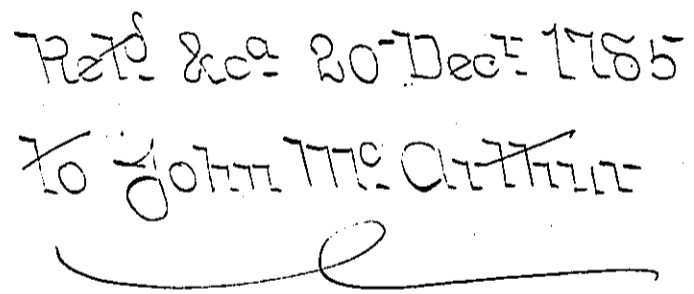 Retd. &ca. 20 Decr. 1785
to John Mc. Arthur